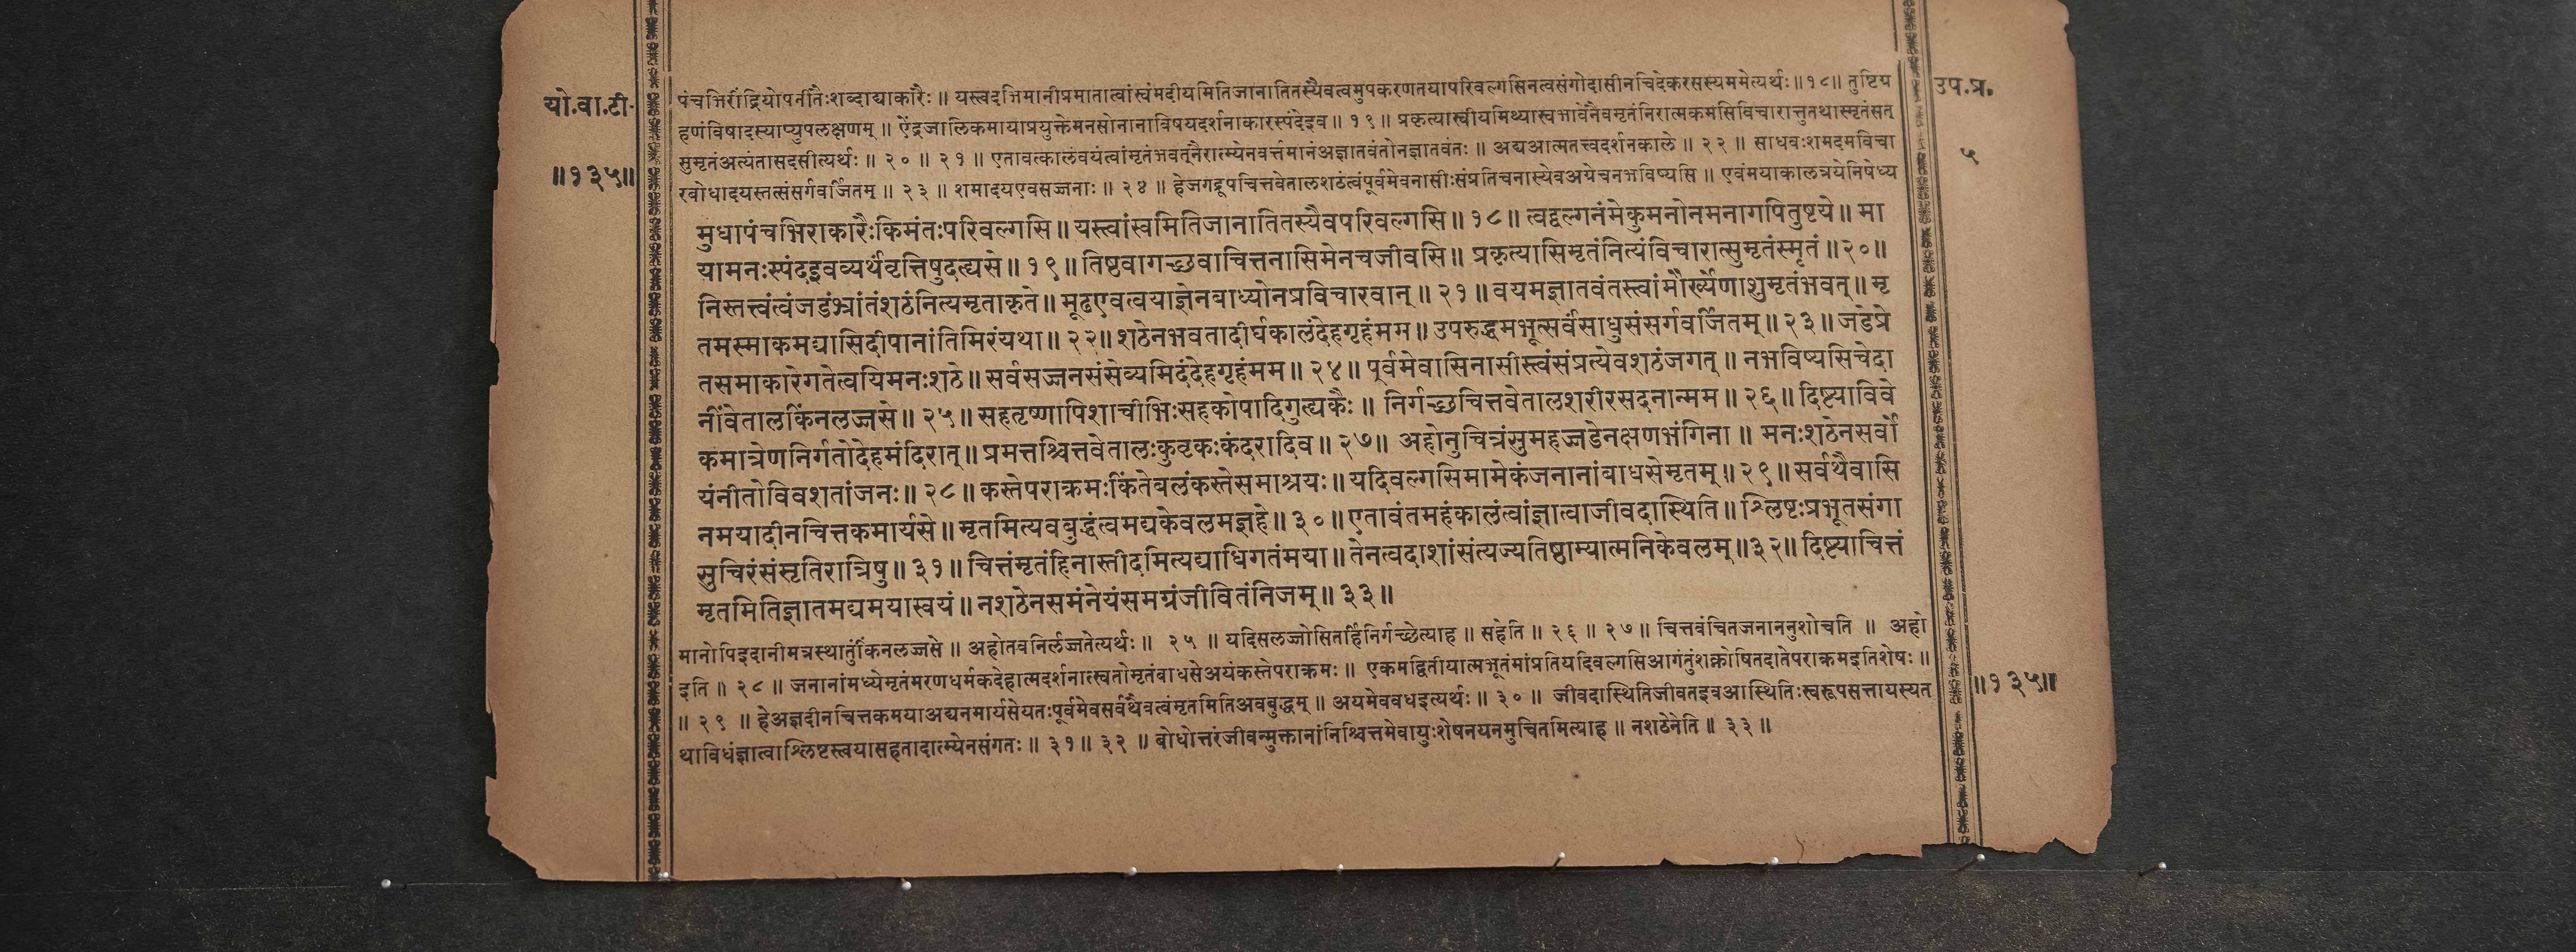 यो.वा.टी.
॥१३५॥
उप.प्र.
५
पंचभिरींद्रियोपनीतैःशब्दाद्याकारैः ॥ यस्त्वदभिमानीप्रमातात्वांस्वंमदीयमितिजानातितस्यैवत्वमुपकरणतयापरिवल्गसिनत्वसंगोदासीनचिदेकरसस्यममेत्यर्थः ॥१८॥ तुष्टिग्र
हणंविषादस्याप्युपलक्षणम् ॥ ऐंद्रजालिकमायाप्रयुक्तेमनसोनानाविषयदर्शनाकारस्पंदेइव ॥ १९ ॥ प्रकृत्यास्वीयमिथ्यास्वभावेनैवमृतंनिरात्मकमसिविचारात्तुतथास्मृतंसत्
सुमृतंअत्यंतासदसीत्यर्थः ॥ २० ॥ २१ ॥ एतावत्कालंवयंत्वांमृतंभवत्नैरात्म्येनवर्त्तमानंअज्ञातवंतोनज्ञातवंतः ॥ अद्यआत्मतत्त्वदर्शनकाले ॥ २२ ॥ साधवःशमदमविचा
रबोधादयस्तत्संसर्गवर्जितम् ॥ २३ ॥ शमादयएवसज्जनाः ॥ २४ ॥ हेजगद्रूपचित्तवेतालशठंत्वंपूर्वमेवनासीःसंप्रतिचनास्येवअग्रेचनभविष्यसि ॥ एवंमयाकालत्रयेनिषेध्य
मुधापंचभिराकारैःकिमंतःपरिवल्गसि॥ यस्त्वांस्वमितिजानातितस्यैवपरिवल्गसि॥ १८॥ त्वद्वल्गनंमेकुमनोनमनागपितुष्टये॥ मा
यामनःस्पंदइवव्यर्थंवृत्तिषुदह्यसे॥ १९॥ तिष्ठवागच्छवाचित्तनासिमेनचजीवसि॥ प्रकृत्यासिमृतंनित्यंविचारात्सुमृतंस्मृतं॥२०॥
निस्तत्त्वंत्वंजडंभ्रांतंशठंनित्यमृताकृते॥ मूढएवत्वयाज्ञेनबाध्योनप्रविचारवान्॥ २१॥ वयमज्ञातवंतस्त्वांमौर्ख्येणाशुमृतंभवत्॥ मृ
तमस्माकमद्यासिदीपानांतिमिरंयथा॥ २२॥ शठेनभवतादीर्घकालंदेहगृहंमम॥ उपरुद्धमभूत्सर्वंसाधुसंसर्गवर्जितम्॥ २३॥ जडेप्रे
तसमाकारेगतेत्वयिमनःशठे॥ सर्वसज्जनसंसेव्यमिदंदेहगृहंमम॥ २४॥ पूर्वमेवासिनासीस्त्वंसंप्रत्येवशठंजगत्॥ नभविष्यसिचेदा
नींवेतालकिंनलज्जसे॥ २५॥ सहतृष्णापिशाचीभिःसहकोपादिगुह्यकैः॥ निर्गच्छचित्तवेतालशरीरसदनान्मम॥ २६॥ दिष्ट्याविवे
कमात्रेणनिर्गतोदेहमंदिरात्॥ प्रमत्तश्चित्तवेतालःकुवृकःकंदरादिव॥ २७॥ अहोनुचित्रंसुमहज्जडेनक्षणभंगिना॥ मनःशठेनसर्वो
यंनीतोविवशतांजनः॥ २८॥ कस्तेपराक्रमःकिंतेबलंकस्तेसमाश्रयः॥ यदिवल्गसिमामेकंजनानांबाधसेमृतम्॥ २९॥ सर्वथैवासि
नमयादीनचित्तकमार्यसे॥ मृतमित्यवबुद्धंत्वमद्यकेवलमज्ञहे॥ ३०॥ एतावंतमहंकालंत्वांज्ञात्वाजीवदास्थिति॥ श्लिष्टःप्रभूतसंगा
सुचिरंसंसृतिरात्रिषु॥ ३१॥ चित्तंमृतंहिनास्तीदमित्यद्याधिगतंमया॥ तेनत्वदाशांसंत्यज्यतिष्ठाम्यात्मनिकेवलम्॥३२॥ दिष्ट्याचित्तं
मृतमितिज्ञातमद्यमयास्वयं॥ नशठेनसमंनेयंसमग्रंजीवितंनिजम्॥ ३३॥
मानोपिइदानीमत्रस्थातुंकिंनलज्जसे ॥ अहोतवनिर्लज्जतेत्यर्थः ॥ २५ ॥ यदिसलज्जोसितर्हिनिर्गच्छेत्याह ॥ सहेति ॥ २६ ॥ २७ ॥ चित्तवंचितजनाननुशोचति ॥ अहो
इति ॥ २८ ॥ जनानांमध्येमृतंमरणधर्मकदेहात्मदर्शनात्स्वतोमृतंबाधसेअयंकस्तेपराक्रमः ॥ एकमद्वितीयात्मभूतंमांप्रतियदिवल्गसिआगंतुंशक्नोषितदातेपराक्रमइतिशेषः ॥
॥ २९ ॥ हेअज्ञदीनचित्तकमयाअद्यनमार्यसेयतःपूर्वमेवसर्वथैवत्वंमृतमितिअवबुद्धम् ॥ अयमेववधइत्यर्थः ॥ ३० ॥ जीवदास्थितिजीवतइवआस्थितिःस्वरूपसत्तायस्यत
थाविधंज्ञात्वाश्लिष्टस्त्वयासहतादात्म्येनसंगतः ॥ ३१॥ ३२ ॥ बोधोत्तरंजीवन्मुक्तानांनिश्चित्तमेवायुःशेषनयनमुचितमित्याह ॥ नशठेनेति ॥ ३३ ॥
॥१३५॥